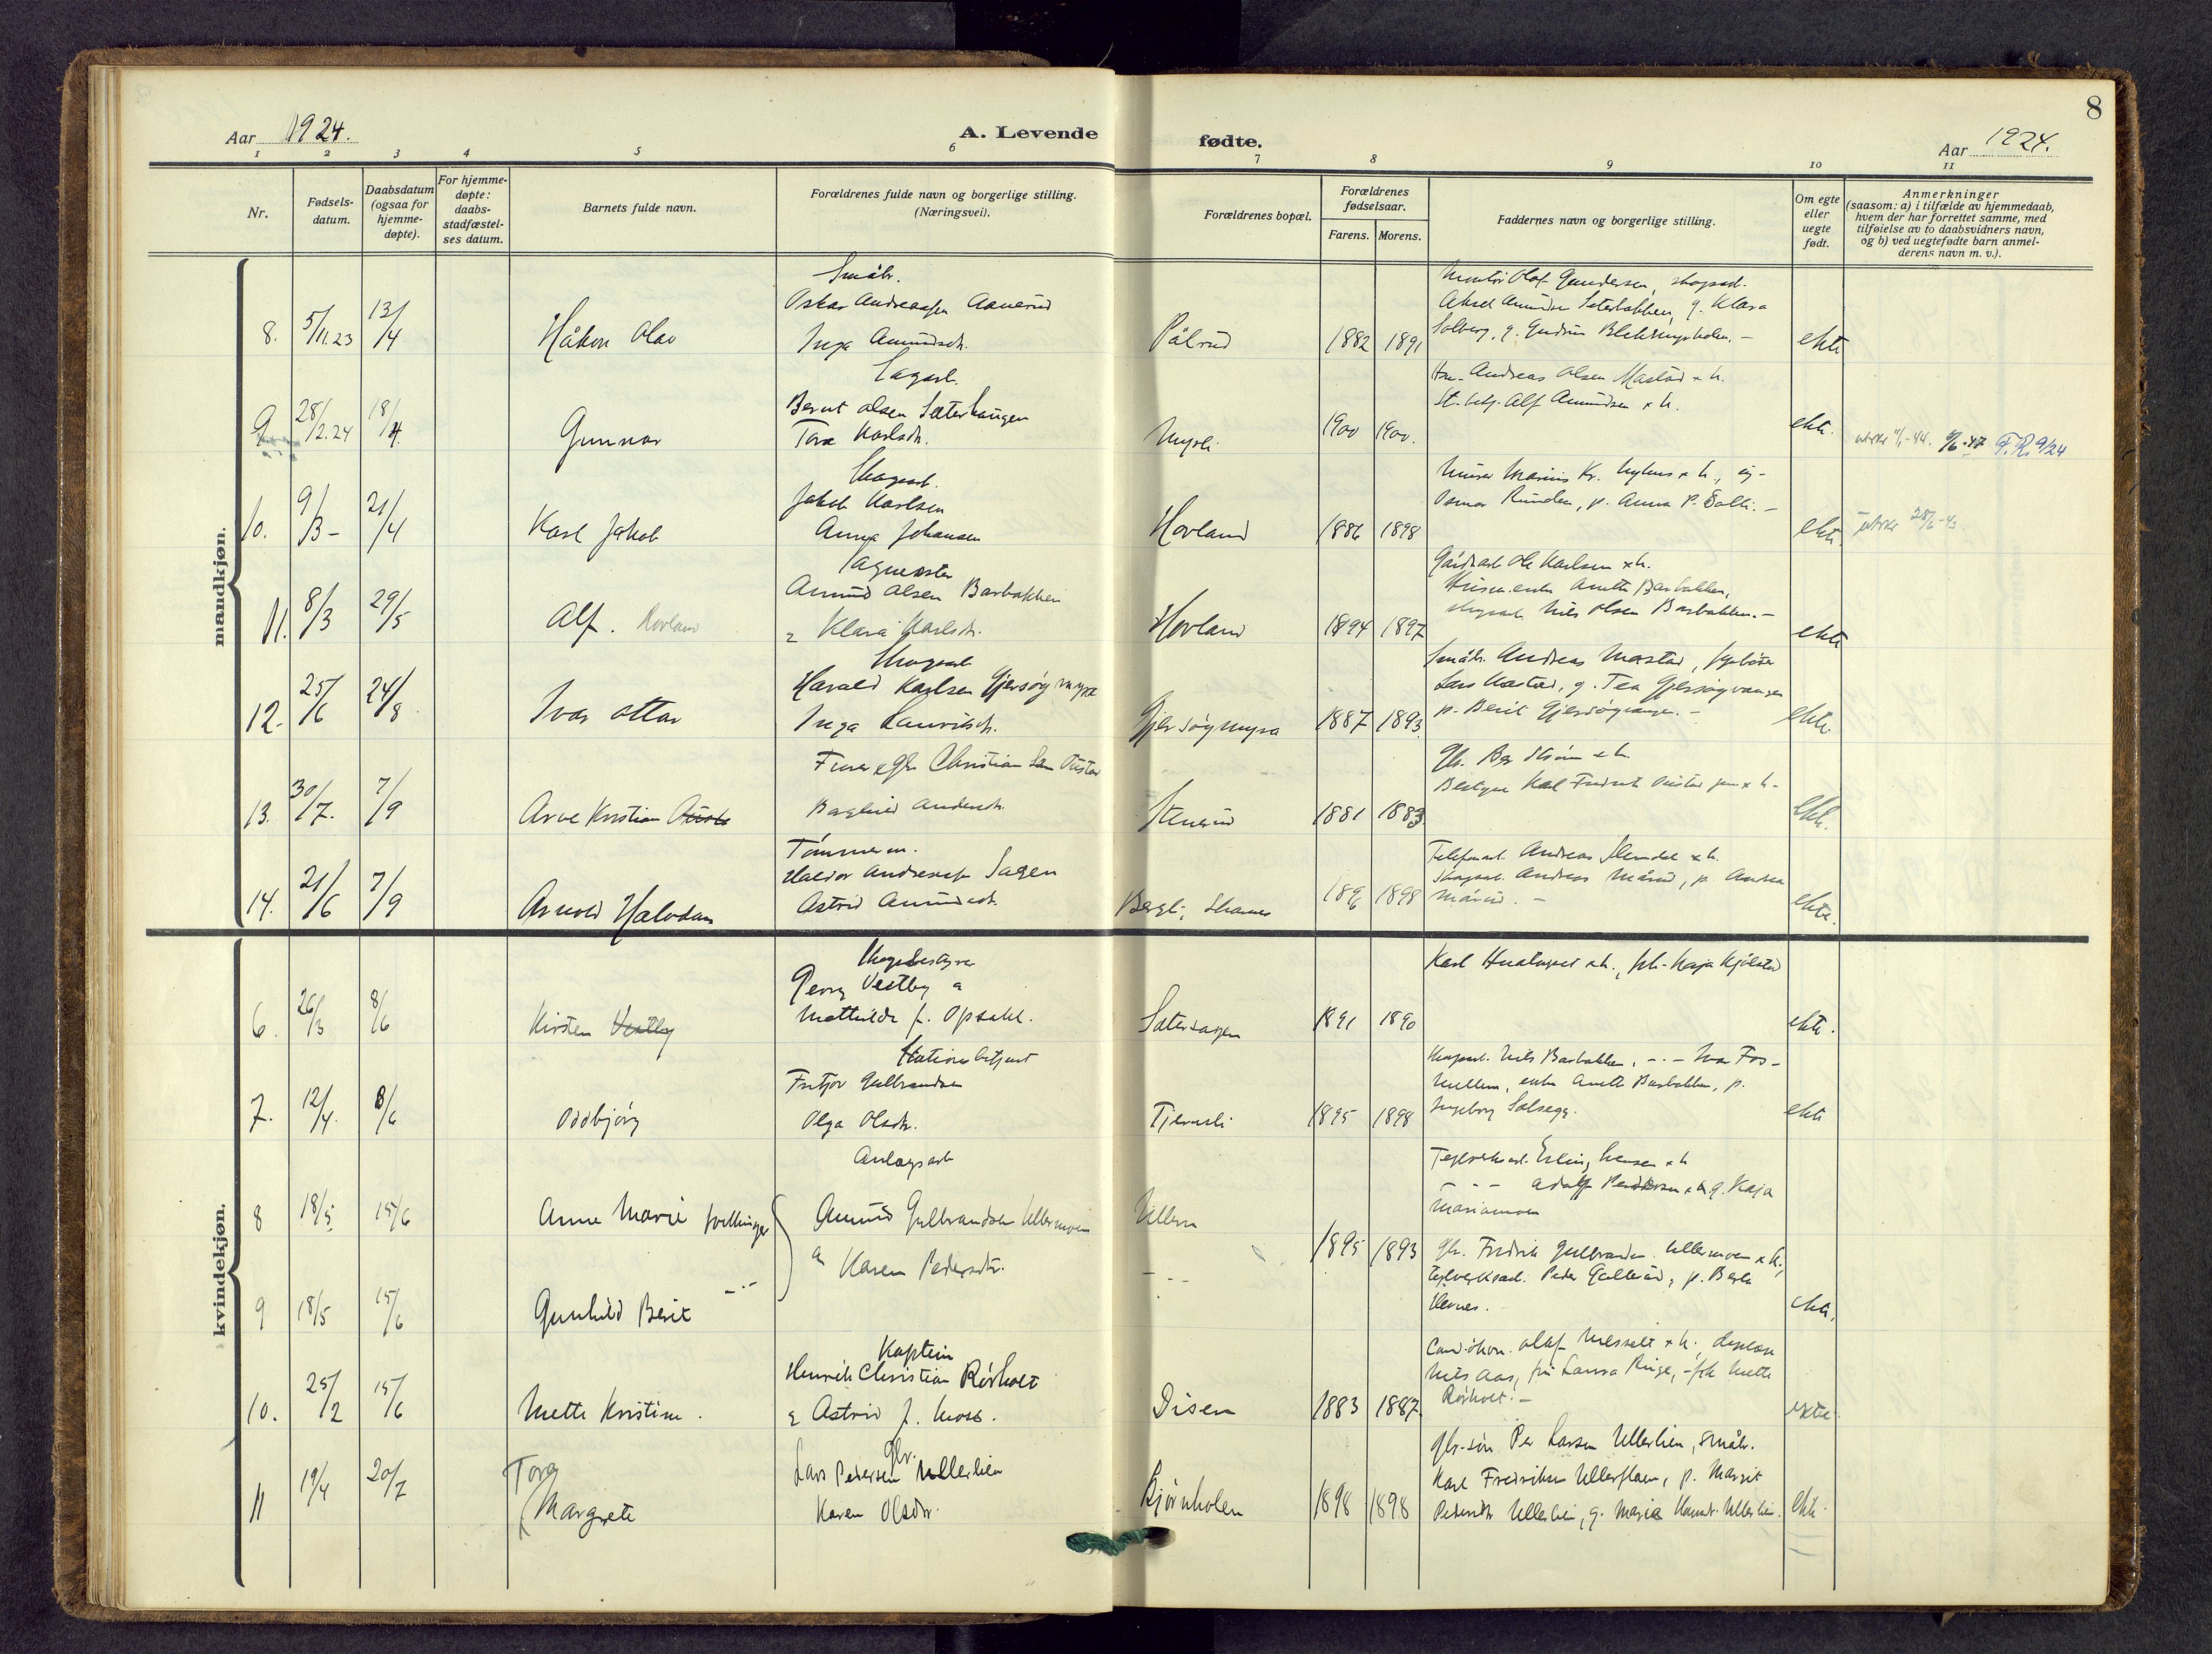 8
Aar 1924. A. Levende fødte. Aar 1924.
1 2 3 4 5 6 7 8 9 10 11
Nr.
Fødsels-
datum.
Daabsdatum
(ogsaa for
hjemme-
døpte).
For hjemme-
døpte:
daabs-
stadfæstel-
ses datum.
Barnets fulde navn.
Forældrenes fulde navn og borgerlige stilling.
(Næringsvei).
Forældrenes bopæl.
Forældrenes
fødselsaar.
Farens. Morens.
Faddernes navn og borgerlige stilling.
Om egte
eller
uegte
født.
Anmerkninger
(saasom: a) i tilfælde av hjemmedaab,
hvem der har forrettet samme, med
tilføielse av to daabsvidners navn,
og b) ved uegtefødte barn anmel-
derens navn m. v.).
mandkjøn.
8. 5/11.23 13/4 Håkon Olav
Småbr.
Oskar Andreassen Aanerud
Inga Amundsdr.
Pålrud 1882 1891
Montør Olaf Gundersen, skogsarb.
Aksel Amundsen Seterbakken, g. Klara
Solberg, g. Gudrun
ekte
9 28/2.24 18/4. Gunnar
Sagarb.
Bernt Olsen Sæterhaugen
Tora Karlsdr.
Myrli 1900 1900.
Andreas Olsen Mastad & h.
St. betj. Alf Amundsen & h.
ekte. F.R. 9/24
10. 9/3 - 21/4 Karl Jakob
Skogsarb.
Jakob Karlsen
Anna Johansen
Hovland 1886 1898
Murer Marius Kr. Nyhus & h.,
p. Anna P. Solli. -
ekte.
11. 8/3 29/5 Alf. Hovland
Sagmester
Amund Olsen Barbakken
& Klara Karlsdr.
Hovland 1894 1897
Gårdsarb Ole Karlsen & h.
enke Anette Barbakken,
skogsarb. Nils Olsen Barbakken. -
ekte
12. 25/6 24/8. Ivar Ottar
Skogsarb
Harald Karlsen Gjersøgmyra
Inga Lauritsdr.
Gjersøgmyra 1887 1893.
Småbr. Andreas Mastad,
Lars Mastad, g. Tea Gjersøgvangen
p. Berit Gjersøgvangen. -
ekte.
13. 30/7. 7/9 Arve Kristian
Christian
Ragnhild Andersdr.
Stenerud 1881 1883.
& h.
Bestyrer Karl Fredrik & h. -
ekte.
14. 21/6 7/9 Arnold Halvdan
Tømmerm.
Haldor Andreassen Sagen
Astrid Amundsdr.
Bergli, Skarnes 1896 1898
Telefonarb. Andreas & h.
Skogsarb. Andreas Mårud, p. Andrea
Mårud. -
ekte.
kvindekjøn.
6. 26/3 8/6 Kirsten Vestby
Skogbestyrer
Georg Vestby &
Mathilde f. Opsahl.
Setersagen 1891 1890
Karl & h., frk. Kaja Kjølstad
ekte.
7. 12/4. 8/6 Oddbjørg
Stationsbetjent
Fritjov Gulbrandsen
Olga Olsdr.
Tjernsli 1895 1898
Skogsarb. Nils Barbakken, - . - Ivar Fos-
enke Anette Barbakken, p.
Ingeborg Solsegg.
ekte
8 18/5 15/6 Anne Marie tvillinger
Anlægsarb
Amund Gulbrandsen Ullernmoen
& Karen Pedersdtr.
Ullern
1895 1893
Teglverksarb. Erling Hansen & h
- . - Adolf Pedersen & h g. Kaja
Mariamoen
9 18/5 15/6 Gunhild Berit - . -
- . -
Gbr. Fredrik Gulbrandsen Ullernmoen & h.,
Teglverksarb. Peder Gullerud, p. Berta
Ullernes.
ekte.
10. 25/2 15/6 Mette Kristine.
Kaptein
Henrik Christian Rørholt
& Astrid f. Moss.
Disen 1883 1887.
Olaf Messelt & h.,
Nils Aas, fru Laura Ringe, - frk Mette
Rørholt. -
ekte
11 19/4 20/7 Tora
Margrete
Gbr.
Lars Pedersen Ullerlien
Karen Olsdtr.
Bjørnholen 1898 1898
Gbr-søn Per Larsen Ullerlien, småbr.
Karl Fredriksen Ullerflaen, p. Margit
Pedersdtr Ullerlien, g. Maria Ullerlien.
ekte.